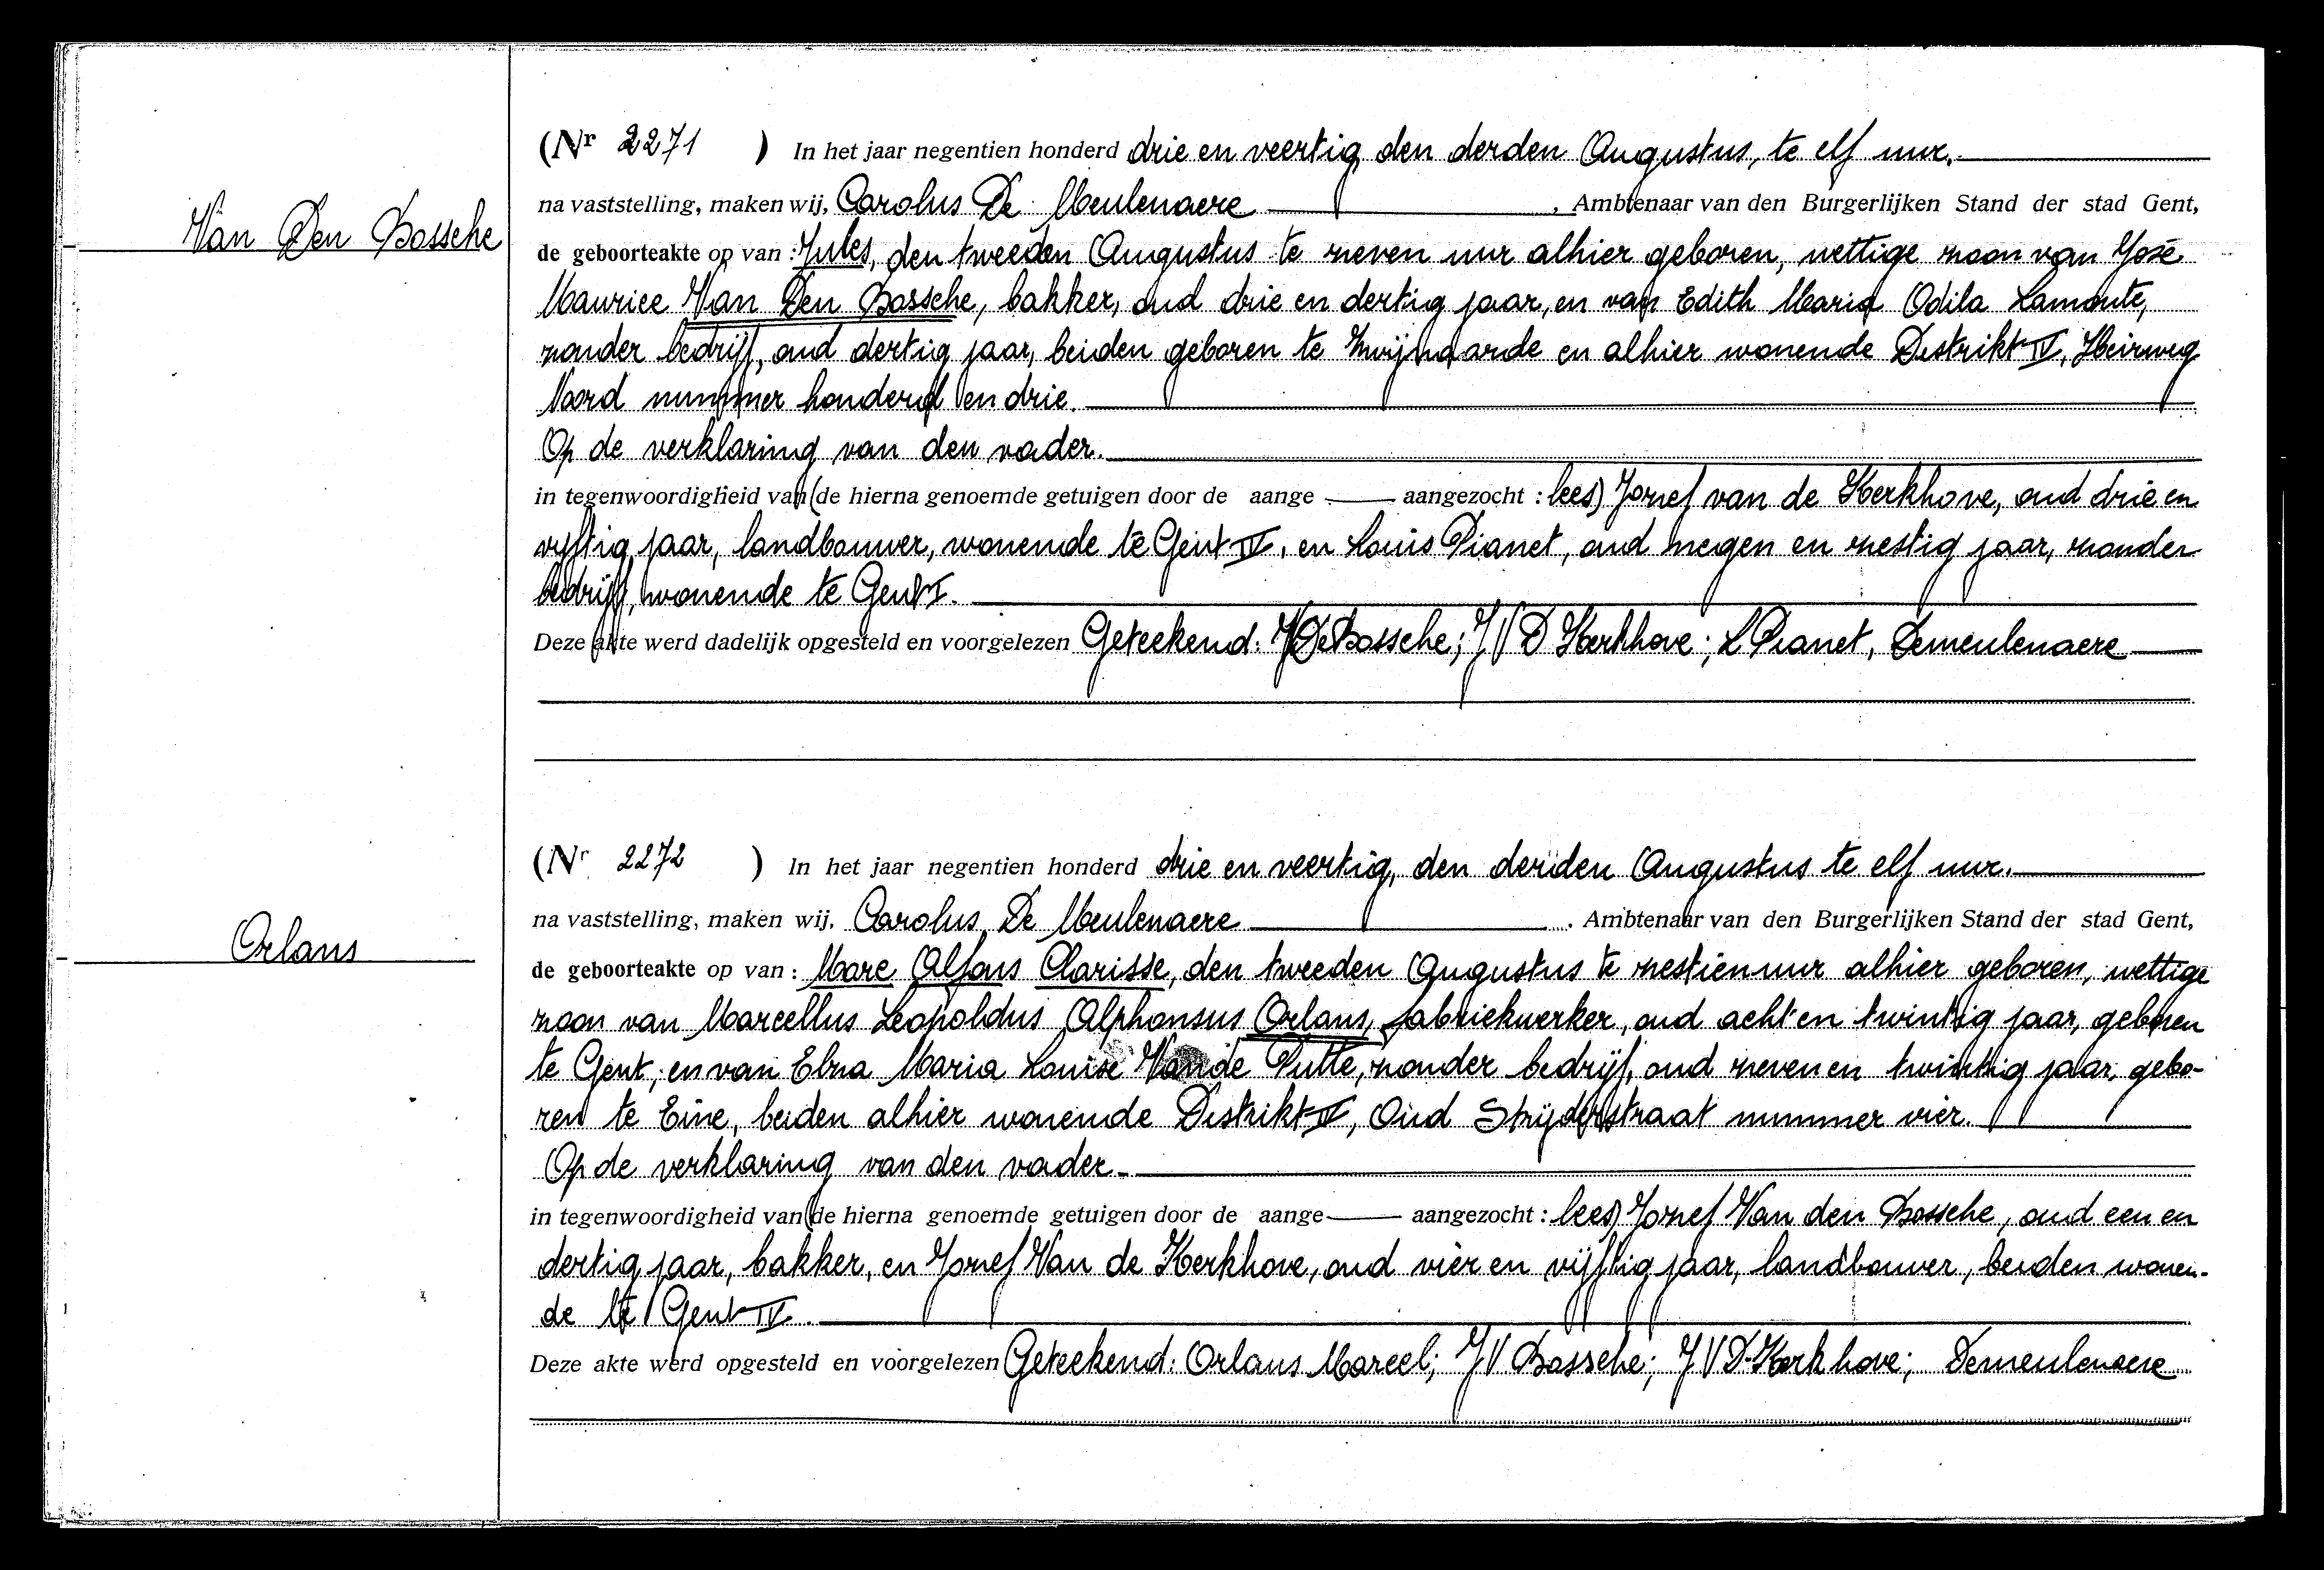 Van Den Bossche
(Nr 2271 ) In het jaar negentien honderd drie en veertig den derden Augustus, te elf uur.
na vaststelling, maken wij, Carolus De Meulenaere, Ambtenaar van den Burgerlijken Stand der stad Gent,
de geboorteakte op van : Jules, den tweeden Augustus te zeven uur alhier geboren, wettige zoon van José
Maurice Van Den Bossche, bakker, oud drie en dertig jaar, en van Edith Maria Odila Lamonte,
zonder bedrijf, oud dertig jaar, beiden geboren te Zwijnaarde en alhier wonende Distrikt IV, Heirweg
Noord nummer honderd en drie.
Op de verklaring van den vader.
in tegenwoordigheid van (de hierna genoemde getuigen door de aange — aangezocht : lees) Jozef van de Kerkhove, oud drie en
vijftig jaar, landbouwer, wonende te Gent IV, en Louis Pianet, oud negen en zestig jaar, zonder
bedrijf, wonende te Gent I.
Deze akte werd dadelijk opgesteld en voorgelezen Geteekend: J V De Bossche; J V D Kerkhove; L Pianet, Demeulenaere
Orlans
(Nr 2272 ) In het jaar negentien honderd drie en veertig, den derden Augustus te elf uur.
na vaststelling, maken wij, Carolus De Meulenaere, Ambtenaar van den Burgerlijken Stand der stad Gent,
de geboorteakte op van : Marc Alfons Clarisse, den tweeden Augustus te zestien uur alhier geboren, wettige
zoon van Marcellus Leopoldus Alphonsus Orlans, fabriekwerker, oud acht en twintig jaar, geboren
te Gent, en van Elza Maria Louise Van de Putte, zonder bedrijf, oud zeven en twintig jaar, gebo-
ren te Eine, beiden alhier wonende Distrikt IV, Oud Strijdersstraat nummer vier.
Op de verklaring van den vader.
in tegenwoordigheid van (de hierna genoemde getuigen door de aange — aangezocht : lees) Jozef Van den Bossche, oud een en
dertig jaar, bakker, en Jozef Van de Kerkhove, oud vier en vijftig jaar, landbouwer, beiden wonen-
de te Gent IV.
Deze akte werd opgesteld en voorgelezen Geteekend: Orlans Marcel; J V Bossche; J V D Kerkhove; Demeulenaere